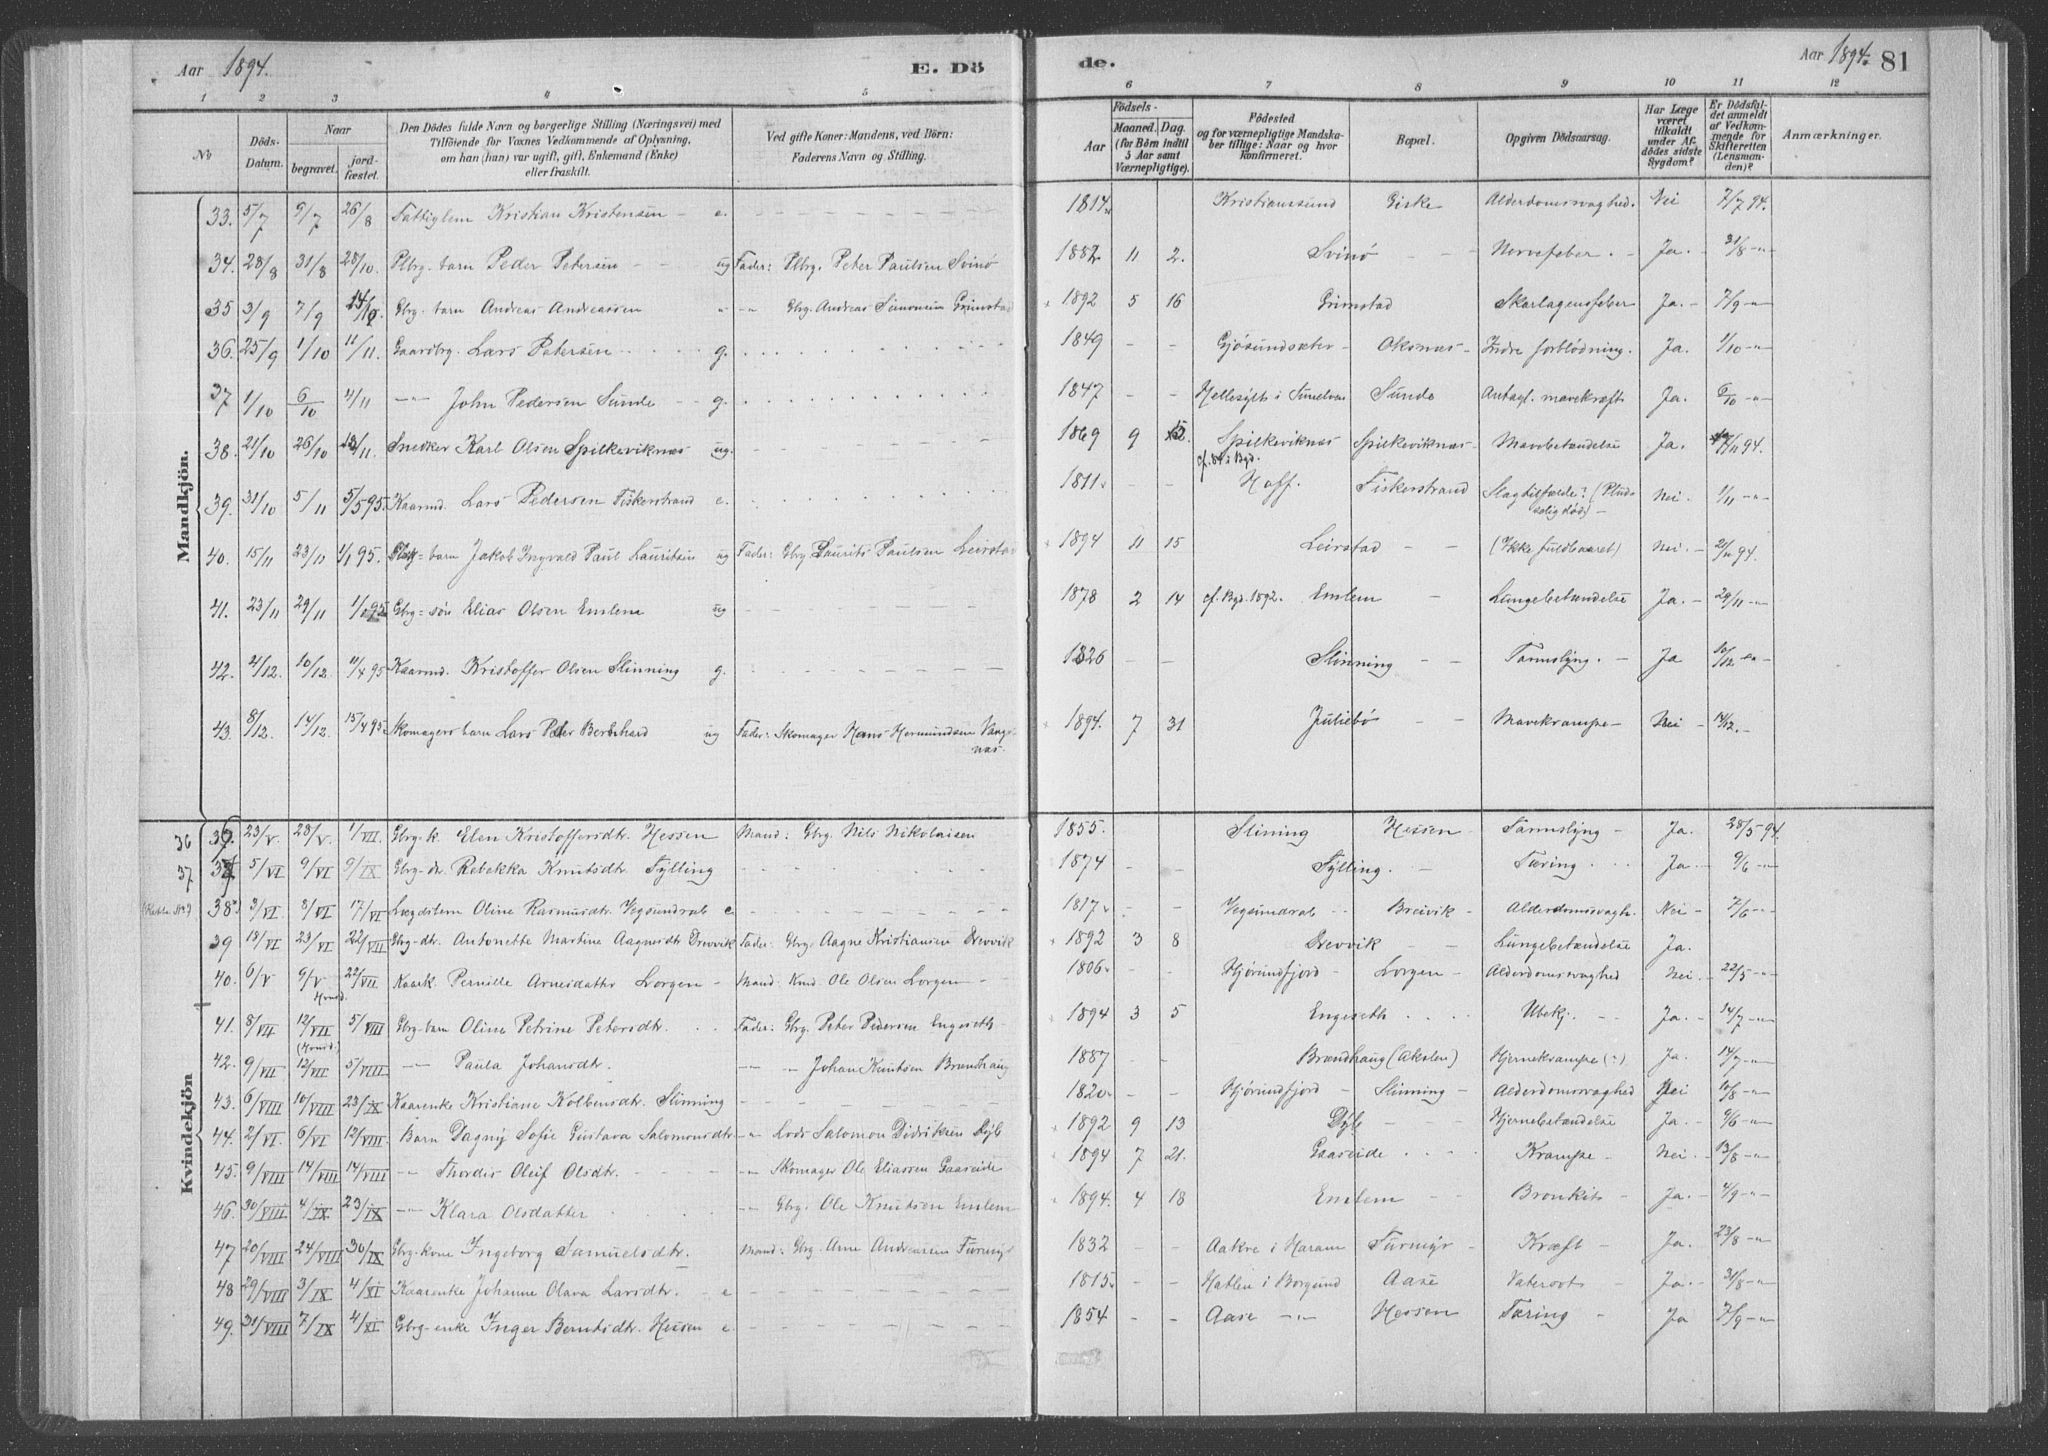 Aar 1894. E. Dö
de. Aar 1894. 81
1 2 3 4 5 6 7 8 9 10 11 12
No Döds-Datum. Naar begravet. jord-fæstet. Den Dödes fulde Navn og borgerlige Stilling (Næringsvei) med Tilföiende for Voxnes Vedkommende af Oplysning, om han (hun) var ugift, gift, Enkemand (Enke) eller fraskilt. Ved gifte Koner: Mandens, ved Börn: Faderens Navn og Stilling. Födsels- Aar Maaned. Dag. (for Börn indtil 5 Aar samt Værnepligtige). Födested og for værnepligtige Mandskaber tillige: Naar og hvor konfirmeret. Bopæl. Opgiven Dödsaarsag. Har Læge været tilkaldt under Afdödes sidste Sygdom? Er Dödsfaldet anmeldt af Vedkommende for Skifteretten (Lensmanden)? Anmærkninger.
Mandkjön.
33. 5/7 9/7 26/8 Fattiglem Kristian Kristensen - e. 1814 Kristiansund Giske - Alderdomsvaghed. Nei 7/7 94.
34. 28/8 31/8 28/10. Plbrg. barn Peder Petersen - ug Fader: Plbrg. Peter Paulsen Svinö 1882 11 2. Svinö - Nervefeber. - Ja. - 31/8 -"-
35 3/9 7/9 14/10. Gbrg. barn Andreas Andreassen " -"- Gbrg. Andreas Simonsen Grimstad 1892 5 16 Grimstad Skarlagensfeber Ja. - 7/9 -"-
36. 25/9 1/10 11/11. Gaardbrg. Lars Petersen g. 1849 - - Gjösundsæter - Oksnæs - Indre forblödning. Ja. 1/10 -"-
37 1/10 6/10 4/11 -"- John Pedersen Sunde - g. 1847 - - Hellesylt i Sunelven Sunde Antagl. mavekræft Ja. 6/10 -"-
38. 21/10 26/10 13/11. Snedker Karl Olsen Spilkeviknæs ug. 1869 9 12. Spilkeviknæs cf. 84 i Bgd. Spilkeviknæs - Mavebetændelse Ja. 94.
39. 31/10 5/11 5/5 95. Kaarmd. Lars Pedersen Fiskerstrand e. 1811 - - Hoff. Fiskerstrand Slagtilfælde? (Pludselig död) - Nei - 1/11 -"-
40. 15/11 23/11 1/1 95. barn Jakob Ingvald Paul Lauritsen ug Fader: Gbrg Laurits Paulsen Leirstad 1894 11 15 Leirstad - - (Ikke fuldbaaret) Nei. - 21/11 94.
41. 23/11 29/11 Gbrg = sön Elias Olsen Emlem ug 1878 2 14 cf. Bgd. 1892. Emlem - Lungebetændelse Ja. - 29/11 -"-
42. 4/12. 10/12. 11/4 95 Kaarmd. Kristoffer Olsen Slinning g. 1826 - - Slinning - Tarmslyng. - Ja 10/12
43. 8/12. 14/12. 15/4 95 Skomagers barn Lars Peder Bernhard ug Fader: Skomager Hans Hermundsen Vangsnæs. 1894. 7 31 Juliebö - Mavekrampe - Nei - 14/12. -
Kvindekjön
36 36. 23/V 28/V. 1/VII. Gbrg. k. Elen Kristoffersdtr. Hessen Mand: Gbrg. Nils Nikolaisen 1855. Slining Hessen - Tarmslyng - Ja. 28/5 94.
37 37 5/VI 9/VI 9/IX Gbrg. dr. Rebekka Knutsdtr. Fylling 1874 - - Fylling. - Tæring. Ja - 9/6 -"-
38 3/VI. 8/VI 17/VI Lægdslem Oline Rasmusdtr. Vegsundral e. 1817 - - Vegsundral - Breivik - Alderdomsvagh. Nei - 7/6 -"-
39 18/VI 23/VI 22/VII Gbrg-dtr. Antonette Martine Aagnesdtr Drevvik Fader: Gbrg. Aagne Kristiansen Drevvik 1892 3 8 Drevvik - - Lungebetændelse Ja.
40. 6/V 9/V 22/VII Kaark. Pernille Arnesdatter Lorgen - Mand: Kmd. Ole Olsen Lorgen - 1806. - - Hjörundfjord - Lorgen - Alderdomsvaghed Nei - 22/5 -"-
41. 8/VII 12/VII 5/VIII Gbrg. barn Oline Petrine Petersdtr. Fader: Gbrg. Peter Pedersen Engeseth - 1894 3 5 Engeseth Ubekj. - Ja. - 14/7 -"-
42. 9/VII 12/VII 5/VIII -"- Paula Johansdtr. -"- " Johan Knutsen Brændhaug 1887 - - Brændhaug (Akslen) Hjernekrampe (?) Ja. 14/7 -"-
43. 6/VIII 10/VIII 23/IX Kaarenke Kristiane Kolbensdtr. Slinning 1820 - - Hjörundfjord - Slinning - Alderdomsvaghed Nei 10/8 -"-
44. 2/VI. 6/VI 12/VIII. Barn Dagny Sofie Gustava Salomonsdtr -"- Lods Salomon Didriksen Dyb 1892 9 13 Dyb - Hjernebetændelse Ja. - 9/6 -"-
45. 9/VIII 14/VIII 14/VIII -"- Thordis Oleif Olsdtr. -"- Skomager Ole Eliassen Gaaseide 1894 7 21. Gaaseide Krampe - Nei - 13/8 -"-
46. 30/VIII. 4/IX. 23/IX -"- Klara Olsdatter -"- Gbrg. Ole Knutsen Emlem 1894. 4 18 Emlem - Bronkit - Ja - 4/9 -"-
47 20/VIII 24/VIII 30/IX Gbrg-kone Ingeborg Samuelsdtr. Mand: Gbrg. Arne Andreassen Furmyr 1832 - - Aakre i Haram Furmyr - Kræft - Ja. 23/8 -"-
48 29/VIII 3/IX 4/XI Kaarenke Johanne Olava Larsdtr. - e 1815 - - Hatlen i Borgund Aase - Vatersot - Ja. - 31/8 -"-
49. 31/VIII 7/IX 4/XI Gbrg-enke Inger Berntsdtr. Hessen e. 1854 - - Aase -"- Hessen Tæring - Ja 7/9 -"-